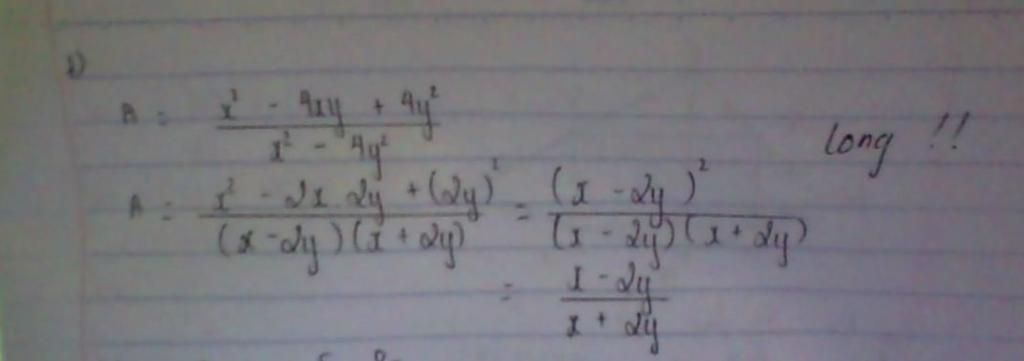 b)
A = x² - 4xy + 4y² / x² - 4y²
long !!
A = x² - 2x 2y + (2y)² / (x - 2y)(x + 2y) = (x - 2y)² / (x - 2y)(x + 2y)
= x - 2y / x + 2y